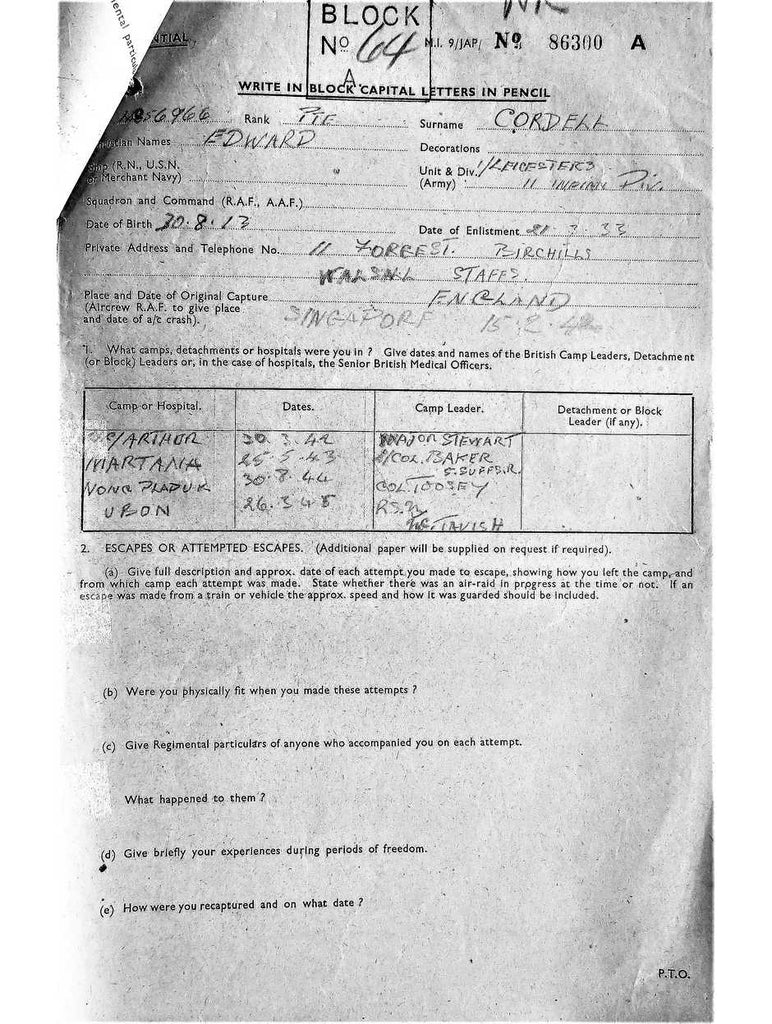 ental particul
NTIAL
BLOCK
No 64
A
M.I. 9/JAP/ No 86300 A
WRITE IN BLOCK CAPITAL LETTERS IN PENCIL
4856966 Rank PTE Surname CORDELL
tian Names EDWARD Decorations
Ship (R.N., U.S.N. or Merchant Navy)
Unit & Div. (Army) 1/LEICESTERS 11 INDIAN DIV.
Squadron and Command (R.A.F., A.A.F.)
Date of Birth 30.8.13 Date of Enlistment 21.3.33
Private Address and Telephone No. 11 FORREST. BIRCHILLS
WALSALL STAFFS.
Place and Date of Original Capture ENGLAND
(Aircrew R.A.F. to give place and date of a/c crash). SINGAPORE 15.2.42
1. What camps, detachments or hospitals were you in ? Give dates and names of the British Camp Leaders, Detachment
(or Block) Leaders or, in the case of hospitals, the Senior British Medical Officers.
Camp or Hospital. Dates. Camp Leader. Detachment or Block Leader (if any).
/ARTHUR 30.3.42 MAJOR STEWART
MARTANA 25.5.43 /COL. BAKER
5.SUFFS.R.
NONG PLADUK 30.8.44 COL TOOSEY
UBON 26.3.45 RS.M
McTAVISH
2. ESCAPES OR ATTEMPTED ESCAPES. (Additional paper will be supplied on request if required).
(a) Give full description and approx. date of each attempt you made to escape, showing how you left the camp, and
from which camp each attempt was made. State whether there was an air-raid in progress at the time or not. If an
escape was made from a train or vehicle the approx. speed and how it was guarded should be included.
(b) Were you physically fit when you made these attempts ?
(c) Give Regimental particulars of anyone who accompanied you on each attempt.
What happened to them ?
(d) Give briefly your experiences during periods of freedom.
(e) How were you recaptured and on what date ?
P.T.O.